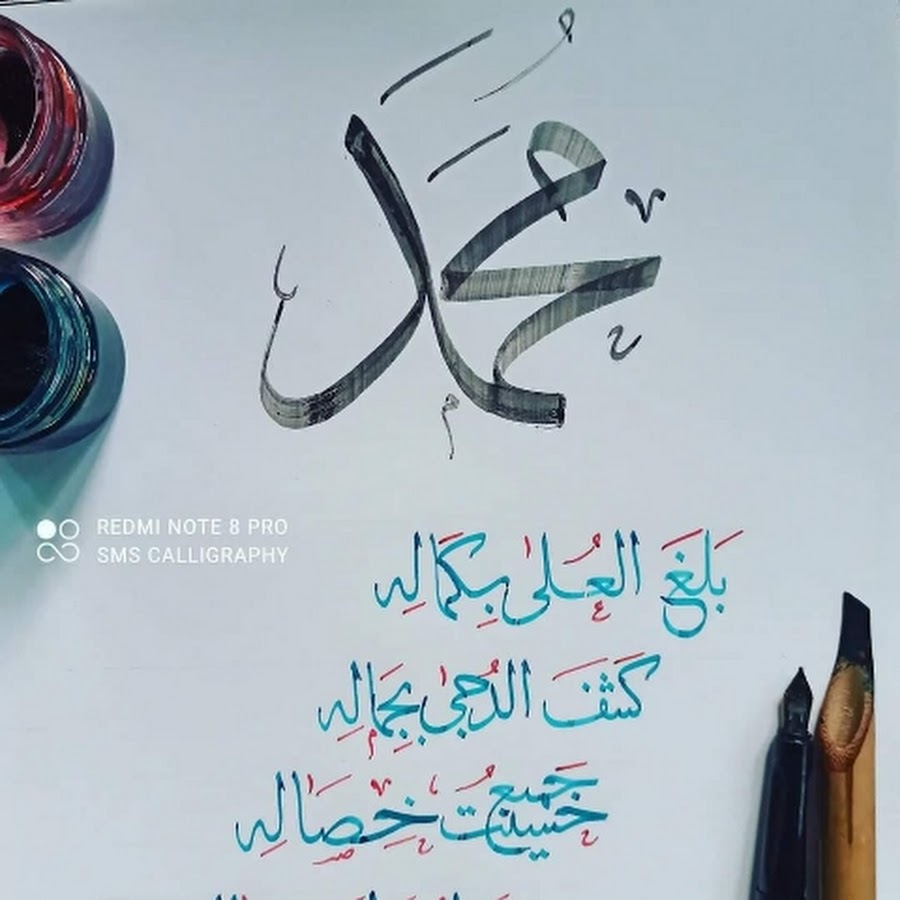 مُحَمَد
REDMI NOTE 8 PRO
SMS CALLIGRAPHY
بَلَغَ العُلىٰ بِكَمَالِهِ
كَشَفَ الدُجىٰ بِجَمَالِهِ
حَسُنَتْ جَمِيعُ خِصَالِهِ